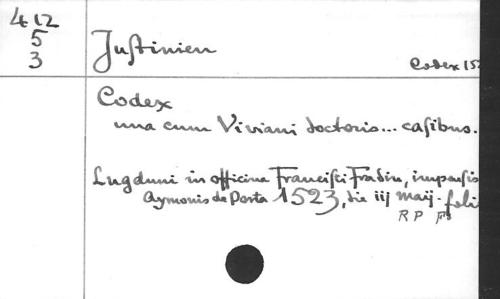 412
5
3
Juſtinien
Codex 152
Codex
una cum Viviani doctoris... caſibus.
Lugduni in officina Franciſci Fradin, impenſis
Aymonis de Porta 1523, die iij maij. foli
R P F